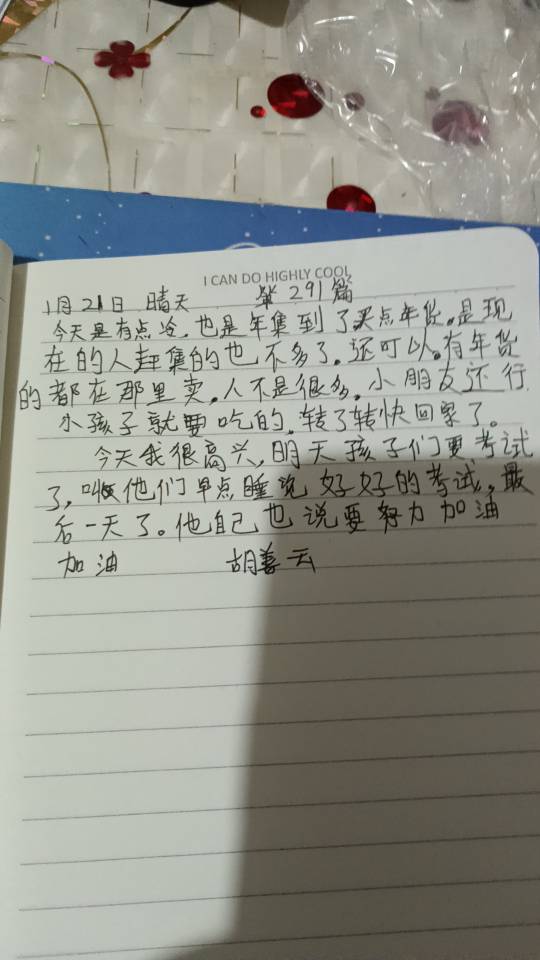 I CAN DO HIGHLY COOL
1月21日 晴天 第291篇
今天是有点冷,也是年集到了买点年货。是现
在的人赶集的也不多了。还可以。有年货
的都在那里卖。人不是很多。小朋友还行
小孩子就要吃的。转了转快回家了。
今天我很高兴,明天孩子们要考试
了,叫他们早点睡觉好好的考试。最
后一天了。他自己也说要努力加油
加油 胡善云